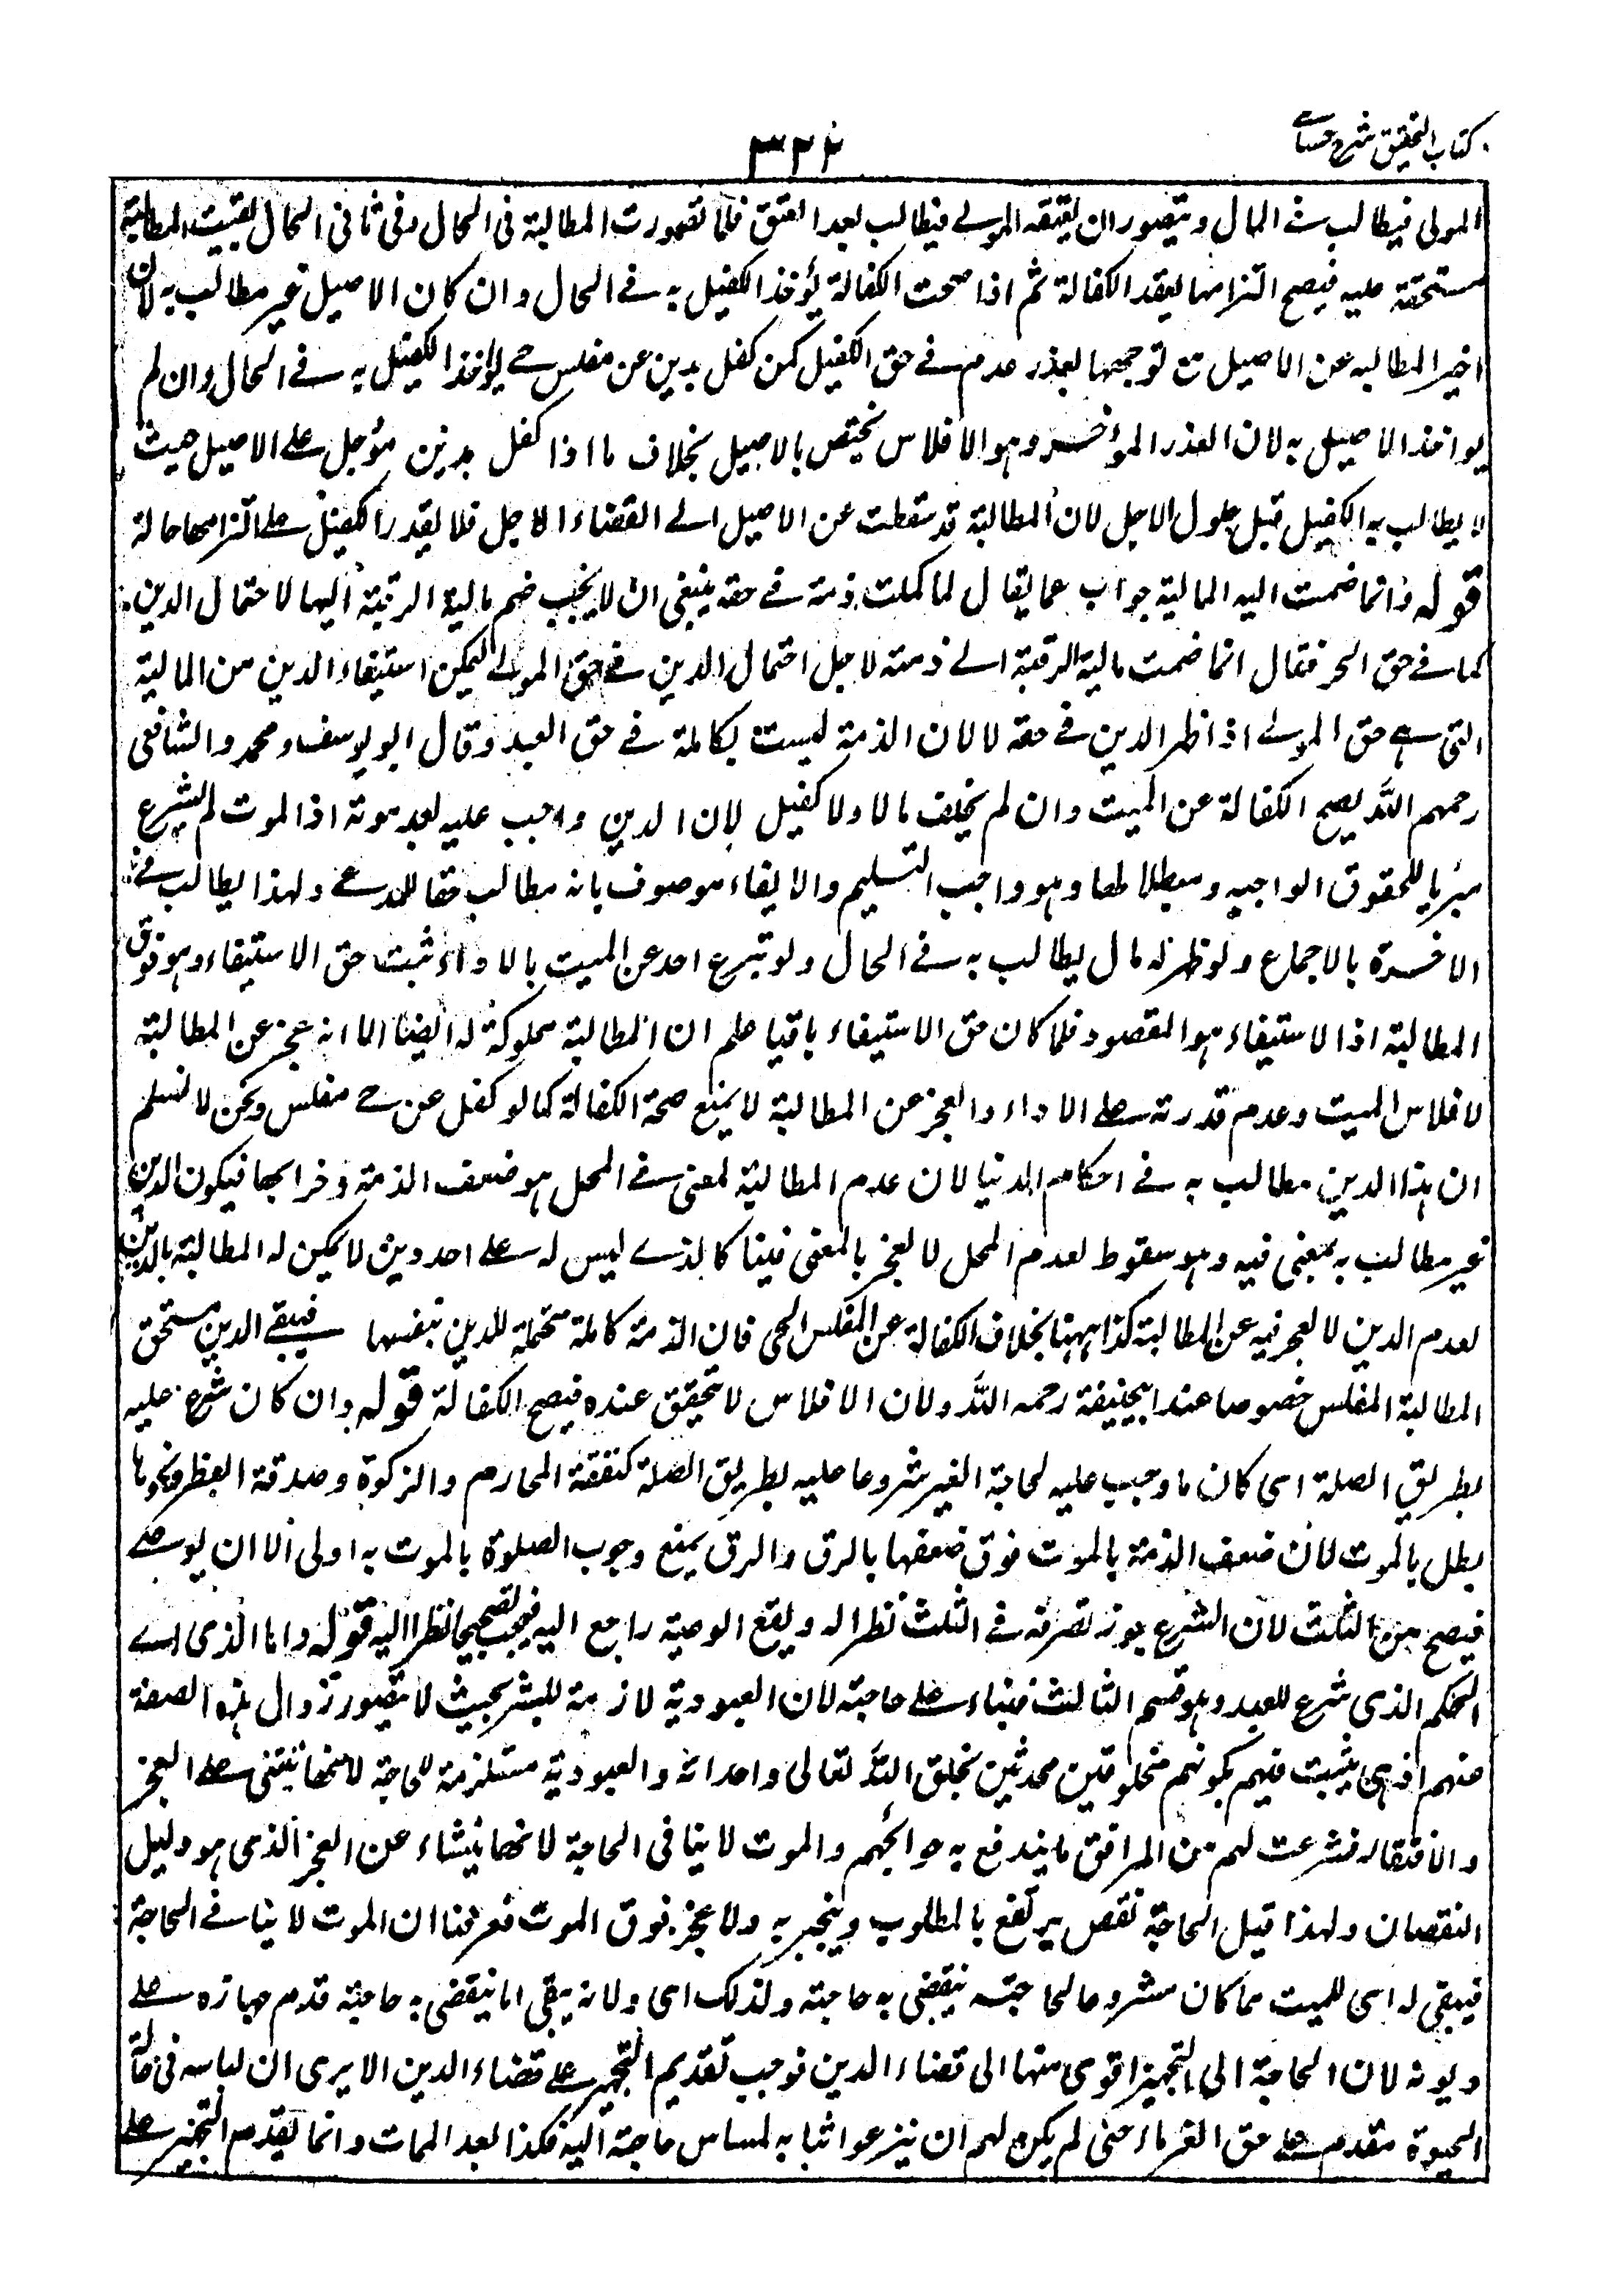 كتاب التحقيق شرح حسامی
۳۳۴
المولى فيطالب فے المال ويتصور ان يعتقه المولے فيطالب بعد العتق فلما تصورت المطالبة فی الحال وفی ثانی الحال بقيت المطالبة
مستحقة عليه فيصح التزامها بعقد الكفالة ثم اذا صحت الكفالة يؤخذ الكفيل به فے الحال وان كان الاصيل غير مطالب به لان
اخير المطالبه عن الاصيل مع توجهها لعذر عدم فے حق الكفيل كمن كفل بدين عن مفلس حے يؤاخذ الكفيل به فے الحال وان لم
يواخذ الاصيل به لان العذر المؤخر وهو الافلاس يختص بالاصيل بخلاف ما اذا كفل بدين مؤجل علے الاصيل حيث
لا يطالب به الكفيل قبل حلول الاجل لان المطالبة قد سقطت عن الاصيل الے القضاء الاجل فلا يقدر الكفيل علے التزامها حالة
قوله وانما ضمت اليه المالية جواب عما يقال لما كملت ذمته فے حقه ينبغی ان لا يجب ضم مالية الرقبة اليها لاحتمال الدين
كما فے حق الحر فقال انما ضمت مالية الرقبة الے ذمته لاجل احتمال الدين فے حق المولے ليمكن استيفاء الدين من المالية
التی هے حق المولے اذا ظهر الدين فے حقه لا لان الذمة ليست بكاملة فے حق العبد وقال ابو يوسف ومحمد والشافعی
رحمهم الله يصح الكفالة عن الميت وان لم يخلف مالا ولا كفيل لان الدين واجب عليه بعد موته اذ الموت لم يشرع
مبريا للحقوق الواجبه ومبطلا لها وهو واجب التسليم والايفاء موصوف بانه مطالب حقا للمدعے ولهذا يطالب فے
الاخرة بالاجماع ولو ظهر له مال يطالب به فے الحال ولو تبرع احد عن الميت بالاداء ثبت حق الاستيفاء وهو فوق
المطالبة اذ الاستيفاء هو المقصود فلما كان حق الاستيفاء باقيا علم ان المطالبة مملوكة له ايضا الا انه عجز عن المطالبة
لافلاس الميت وعدم قدرته علے الاداء والعجز عن المطالبة لا يمنع صحة الكفالة كما لو كفل عن حے مفلس ونحن لا نسلم
ان هذا الدين مطالب به فے احكام الدنيا لان عدم المطالبة لمعنی فے المحل هو ضعف الذمة وخرابها فيكون الدين
غير مطالب به بمعنی فيه وهو سقوط لعدم المحل لا لعجز بالمعنی فينا كالذے ليس له علے احد دين لا يمكن له المطالبة بالدين
لعدم الدين لا لعجز فيه عن المطالبة كذا ههنا بخلاف الكفالة عن المفلس الحی فان الذمة كاملة متحملة للدين بنفسها فيبقے الدين مستحق
المطالبة المفلس خصوصا عند ابيحنيفة رحمه الله ولان الافلاس لا يتحقق عنده فيصح الكفالة قوله وان كان شرع عليه
بطريق الصلة ای كان ما وجب عليه لحاجة الغير مشروعا عليه بطريق الصلة كنفقة المحارم والزكوة وصدقة الفطر ونحوها
بطل بالموت لان ضعف الذمة بالموت فوق ضعفها بالرق والرق يمنع وجوب الصلوة بالموت به اولی الا ان يوصے
فيصح من الثلث لان الشرع جوز تصرفه فے الثلث نظرا له ونفع الوصية راجع اليه فيجب تصحيحها نظرا اليه قوله واما الذی اے
الحكم الذی شرع للعبد وهو قسم الثالث فبناء علے حاجته لان العبودية لازمة للبشر بحيث لا يتصور زوال هذه الصفة
منهم اذ هی يثبت فيهم بكونهم مخلوقين محدثين بخلق الله تعالی واحداثه والعبودية مستلزمة للحاجة لانها تبتنی علے العجز
والافتقار فشرعت لهم من المرافق ما يندفع به حوائجهم والموت لا ينافی الحاجة لانها ينشاء عن العجز الذی هو دليل
النقصان ولهذا قيل الحاجة نقص يرتفع بالمطلوب وينجبر به ولا عجز فوق الموت فعرفنا ان الموت لا ينافے الحاجة
فيبقی له ای للميت مما كان مشروعا لحاجته ينقضی به حاجته ولذلك ای ولانه يبقی اما ينقضی به حاجته قدم جهازه علے
ديونه لان الحاجة الی التجهيز اقوی منها الی قضاء الدين فوجب تقديم التجهيز علے قضاء الدين الا يری ان لباسه فی حالة
الحيوة مقدم علے حق الغرماء حتی لم يكن لهم ان ينزعوا ثيابه لمساس حاجته اليه فكذا بعد الممات وانما يقدم التجهيز علے